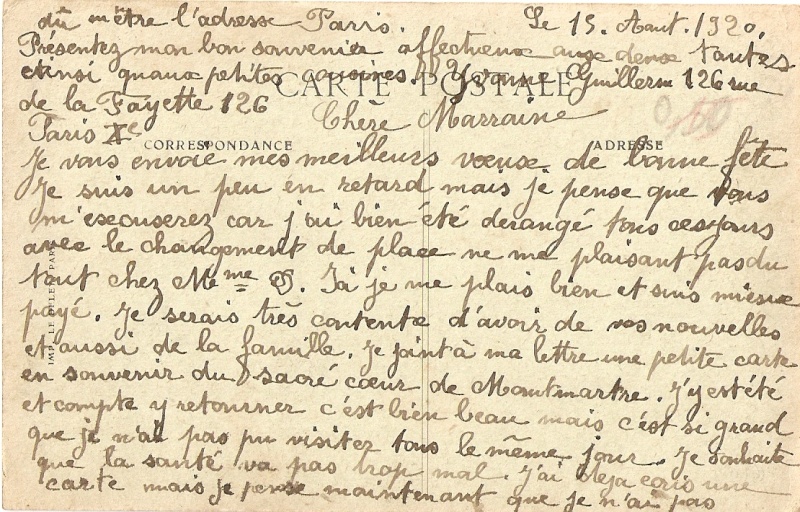 dû mêtre l'adresse Paris. Le 15. Aout. 1920.
Présentez mon bon souvenir affectueux aux deux tantes
Ainsi quaux petites cousines. Yvonne Guillerm 126 rue
CARTE POSTALE
de la Fayette 126
0,50
Paris Xe Chère Marraine
CORRESPONDANCE ADRESSE
Je vous envoie mes meilleurs vœux de bonne fête
Je suis un peu en retard mais je pense que vous
m'escuserez car j'ai bien été derangé tous ces jours
avec le changement de place ne me plaisant pas du
tout chez Mme D. Ici je me plais bien et suis mieux
payé. Je serais très contente d'avoir de vos nouvelles
et aussi de la famille. Je joint à ma lettre une petite carte
en souvenir du sacré cœur de Montmartre. J'y est été
et compte y retourner c'est bien beau mais c'est si grand
que je n'ai pas pu visitez tous le même jour. Je souhaite
que la santé va pas trop mal. J'ai deja ecris une
carte mais je pense maintenant que je n'ai pas
IMP. LE DELEY PARIS